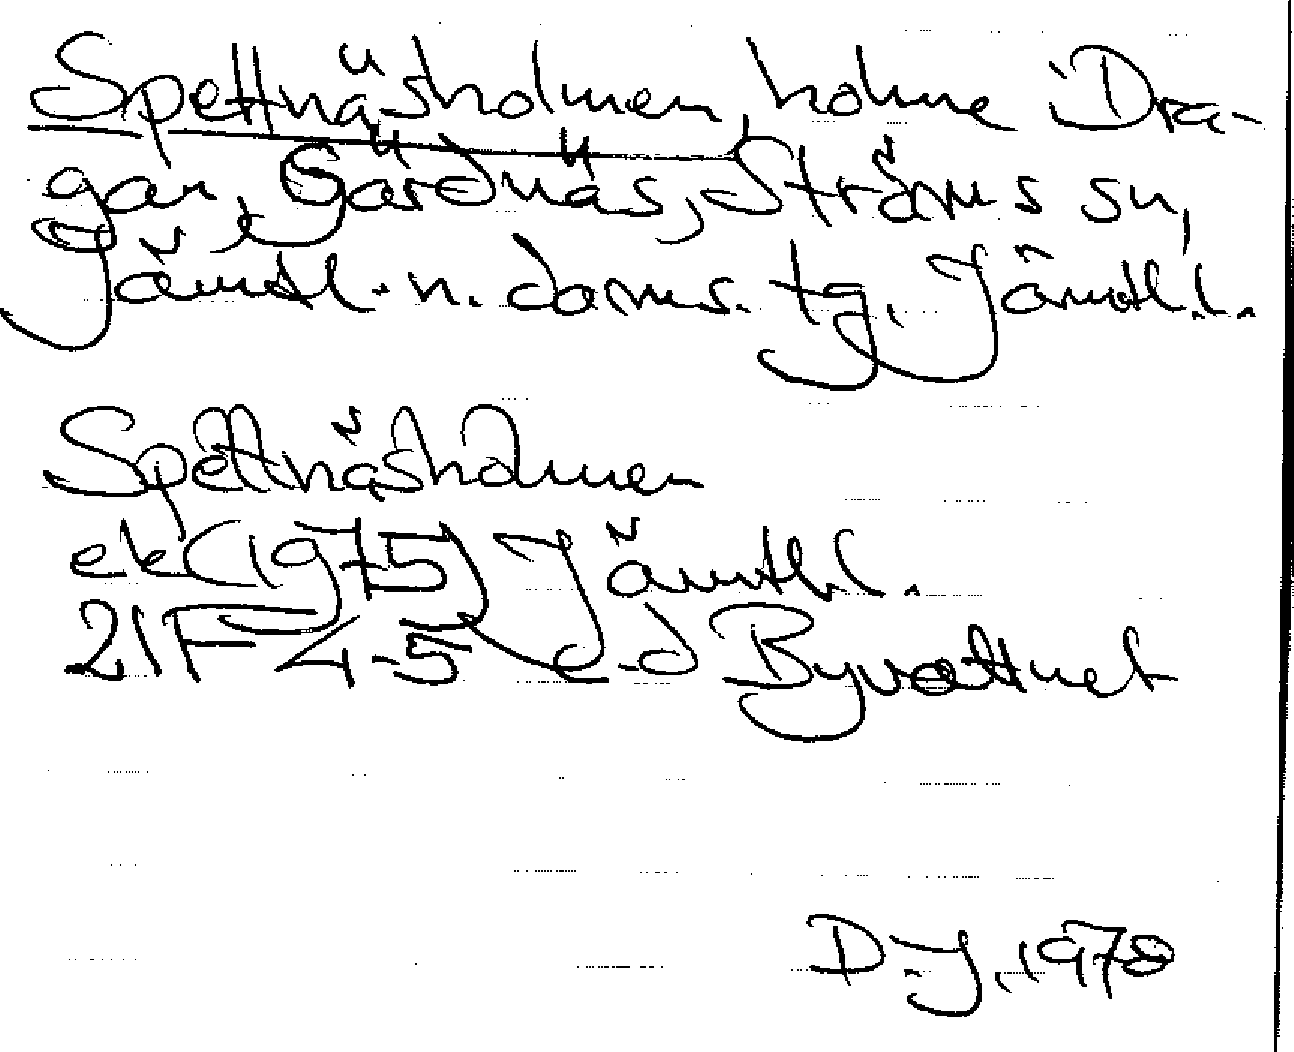 Spettnäsholmen, holme i Dra-
gan, Gärdnäs, Ströms sn,
Jämtl. n. doms. tg, Jämtl. l.
Spettnäsholmen
ek (1975) Jämtl. l.
21F 4-5 c-d Byvattnet
D-J, 1978